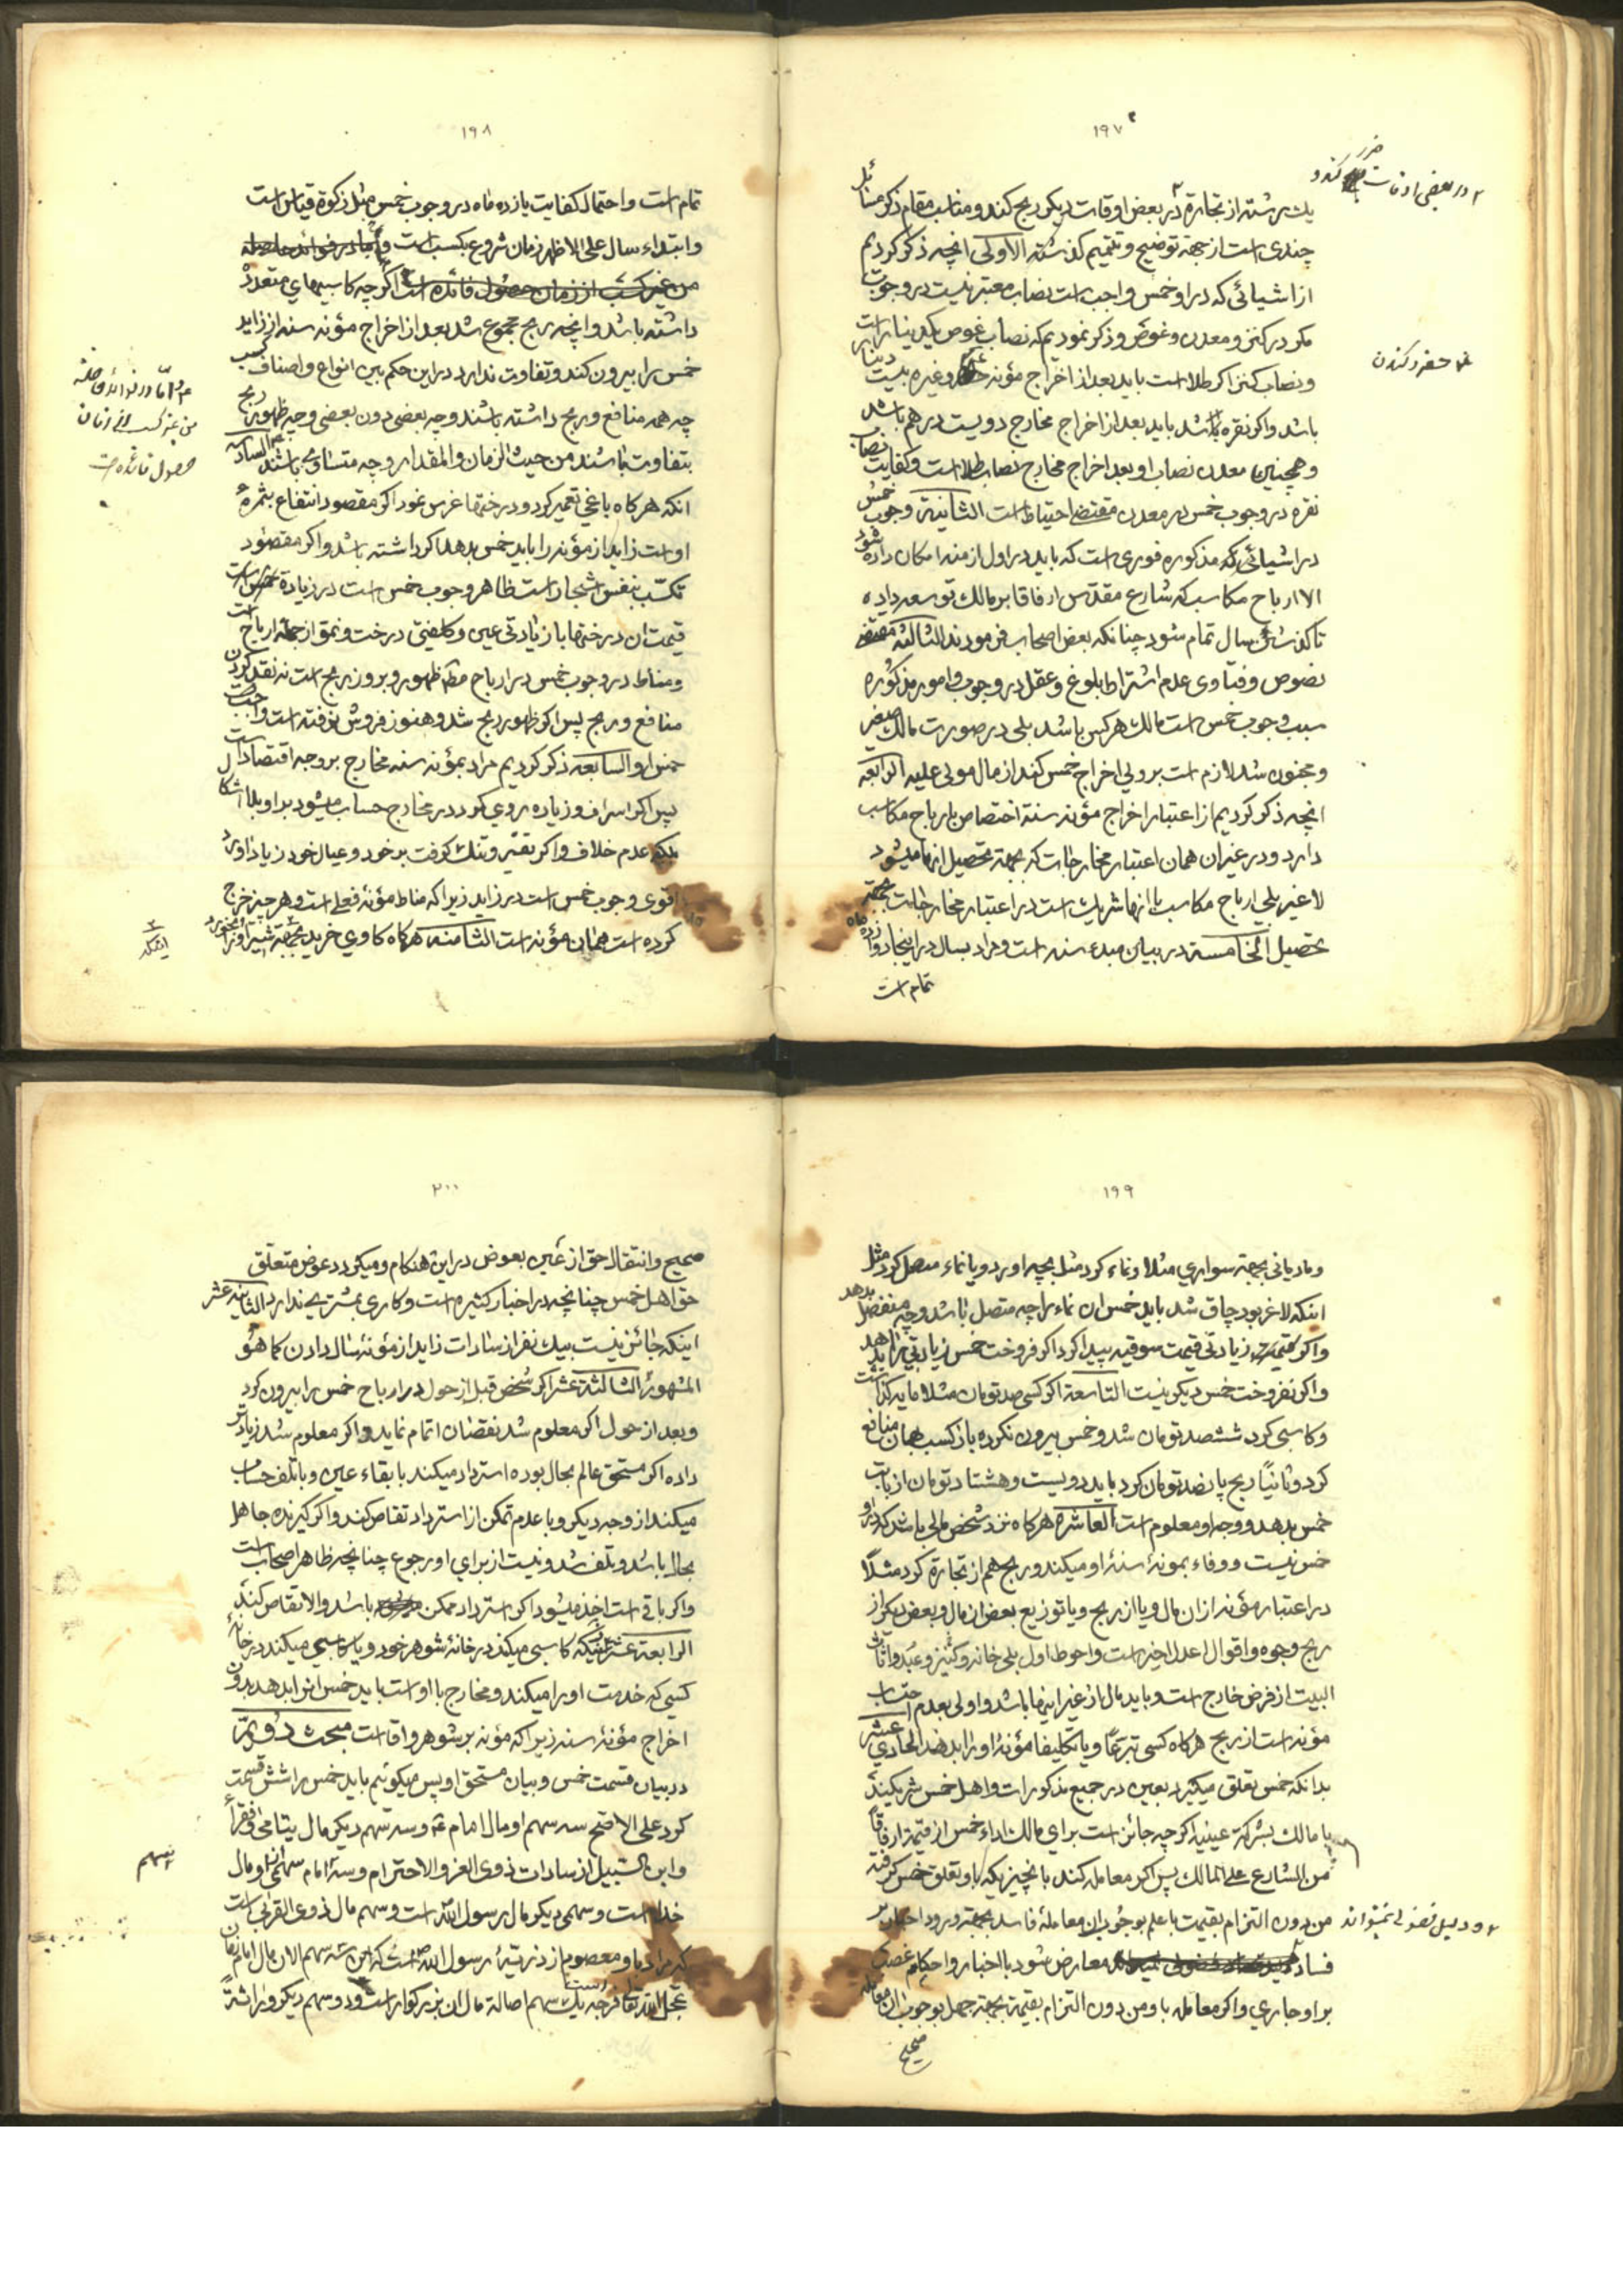 ۱۹۷
یك رشته از تجارة در بعض اوقات دیکر ربح کند و مناسب مقام ذکر مسائل
چندی است از جهة توضیح و تتمیم کذشته الاولی انچه ذکر کردیم
از اشیائی که در او خمس واجب است نصاب معتبر نیست در وجوب
مکر در کنز و معدن و غوص و ذکر نمودیم که نصاب غوص یکدینار است
و نصاب کنز اکر طلا است باید بعد از اخراج مؤنه و غیره بیست دینار
باشد و اکر نقره باشد باید بعد از اخراج مخارج دویست درهم باشد
و همچنین معدن نصاب او بعد اخراج مخارج نصاب طلا است و کفایت نصاب
نقره در وجوب خمس در معدن مقتضی احتیاط است الثانیة وجوب خمس
در اشیائی که مذکوره فوری است که باید در اول ازمنه امکان داده شود
الا ارباح مکاسب که شارع مقدس ارفاقا بر مالك توسعه داده
تا کذشتن سال تمام شود چنانکه بعض اصحاب فرمودند الثالثة مقتضی
نصوص و فتاوی عدم اشتراط بلوغ و عقل در وجوب و امور مذکوره
سبب وجوب خمس است مالك هر کس باشد بلی در صورت مالك صغیر
و مجنون شد لازم است بر ولی اخراج خمس کند از مال مولی علیه الرابعة
انچه ذکر کردیم از اعتبار اخراج مؤنه سنة اختصاص بارباح مکاسب
دارد و در غیر ان همان اعتبار مخارجات که بجهة تحصیل انها میشود
لا غیر بلی ارباح مکاسب با انها شریك است در اعتبار مخارجات بجهة
تحصیل الخامسة در بیان مبدء سنه است و مراد بسال در اینجا دوازده ماه
تمام است
حفر و کندن
۱۹۸
تمام است و احتمال کفایت یازده ماه در وجوب خمس مثل زکوة قیاس است
و ابتداء سال علی الاظهر زمان شروع بکسب است و اما در فوائد حاصله
من غیر کسب از زمان حصول فائده است اکر چه کاسبیهای متعدد
داشته باشد و انچه ربح مجموع شد بعد از اخراج مؤنه سنه از زاید
خمس را بیرون کند و تفاوت ندارد در این حکم بین انواع و اصناف کسب
چه همه منافع و ربح داشته باشند و چه بعضی دون بعضی و چه ظهور ربح
بتفاوت باشند من حیث الزمان و المقدار و چه متساوی باشند السادسة
انکه هر کاه باغی تعمیر کرد و درختها غرس نمود اکر مقصود انتفاع بثمره
او است زاید از مؤنه را باید خمس بدهد اکر داشته باشد و اکر مقصود
تکسب بنفس اشجار است ظاهر وجوب خمس است در زیادة
قیمت ان درختها با زیادتی عین و کلفتی درخت و نمو از جمله ارباح است
و مناط در وجوب خمس در ارباح ظهور و بروز ربح است نه نقد کردن
منافع و ربح پس اکر ظهور ربح شد و هنوز فروش نرفته است واجب است
خمس او السابعة ذکر کردیم مراد بمؤنه سنه مخارج بر وجه اقتصاد است
پس اکر اسراف و زیاده روی کرد در مخارج حساب میشود بر او بلا اشکال
بلکه عدم خلاف و اکر تقتیر و تنك کرفت بر خود و عیال خود زیاد اوی
اقوی وجوب خمس است در زاید زیرا که مناط مؤنه فعلی است و هر چیز خرج
کرده است همان مؤنه است الثامنة هرکاه کاوی خرید بجهة شیر او
و اما در فوائد حاصله
من غیر کسب از زمان
حصول فائده است
۱۹۹
و مادیانی بجهة سواری مثلا و نماء کرد مثل بچه اورد و یا نماء متصل کرد مثل
اینکه لاغر بود چاق شد باید خمس ان نماء را چه متصل باشد و چه منفصل بدهد
و اکر قیمت زیادتی قیمت سوقیه پیدا کرد اکر فروخت خمس زیادتی را بدهد
و اکر نفروخت خمس دیکر نیست التاسعة اکر کسی صد تومان مثلا مایه کذاشت
و کاسبی کرد ششصد تومان شد و خمس بیرون نکرده باز کسب همان منافع
کرد و ثانیاً ربح پانصد تومان کرد باید دویست و هشتاد تومان از بابت
خمس بدهد و وجه او معلوم است العاشرة هرکاه نزد شخص مالی باشد که در او
خمس نیست و وفاء بمونهٔ سنهٔ او میکند و ربح هم از تجارة کرد مثلاً
در اعتبار مؤنه از ان مال و یا از ربح و یا توزیع بعض از مال و بعض دیکر از
ربح وجوه و اقوال اعدل اخیر است و احوط اول بلی خانه و کنیز و عبد و اثاث
البیت از فرض خارج است و باید مال از غیر اینها باشد و اولی بعدم احتساب
مؤنه است از ربح هرکاه کسی تبرعاً و یا تکلیفا مؤنهٔ او را بدهد الحادی عشر
بدانکه خمس تعلق میکیرد بعین در جمیع مذکورات و اهل خمس شریکیند
با مالك بشرکة عینیه اکر چه جائز است برای مالك اداء خمس از قیمة ارفاقاً
من الشارع علی المالك پس اکر معامله کند با نچیزیکه باو تعلق خمس کرفته
من دون التزام بقیمت با علم بوجوب ان معاملهٔ فاسد بجهة ورود اخبار بر
فساد معارض شود با اخبار و احکام غصب
بر او جاری و اکر معامله با و من دون التزام بقیمة بجهة جهل بوجوب ان معامله
صحیح
۲۰۰
صحیح و انتقال حق از عین بعوض در این هنکام و میکردد عوض متعلق
حق اهل خمس چنانچه در اخبار کثیره است و کاری بمشتری ندارد الثانیة عشر
اینکه جائز نیست بیك نفر از سادات زاید از مؤنهٔ سال دادن کما هو
المشهور الثالثة عشر اکر شخص قبل از حول در ارباح خمس را بیرون کرد
و بعد از حول اکر معلوم شد نقصان اتمام نماید و اکر معلوم شد زیادتر
داده اکر مستحق عالم بحال بوده استرداد میکند با بقاء عین و با تلف حساب
میکند از وجه دیکر و با عدم تمکن از استرداد تقاص کند و اکر کیرنده جاهل
بحال باشد و تلف شد و نیست از برای او رجوع چنانچه ظاهر اصحاب است
و اکر باقی است اخذ میشود اکر استرداد ممکن باشد و الا تقاص کند
الرابعة عشر کاسبی میکند در خانهٔ شوهر خود و یا کاسبی میکند در خانهٔ
کسی که خدمت او را میکند و مخارج با او است باید خمس انرا بدهد بدون
اخراج مؤنهٔ سنه زیرا که مؤنه بر شوهر و اقا است مبحث دویم
در بیان قسمت خمس و بیان مستحق او پس میکوئیم باید خمس را شش قسمت
کرد علی الاصح سه سهم او مال امام ع و سه سهم دیکر مال یتامی و فقراء
و ابن السبیل از سادات ذوی العز و الاحترام و سه امام سهمی او مال
خدا است و سهمی دیکر مال رسول الله است و سهم مال ذوی القربی است
که مراد باو معصوم از ذریهٔ رسول الله است که این سه سهم الان مال امام زمان
عجل الله تعالی فرجه یك سهم اصالة مال ان بزرکوار است و دو سهم دیکر وراثةً
سهم